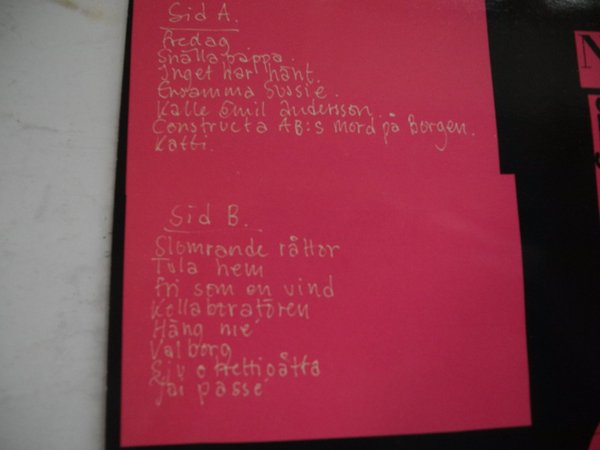 Sid A.
Fredag
Snälla pappa.
Inget har hänt.
Ensamma Sussie.
Kalle Emil Andersson.
Constructa AB:s mord på Borgen.
Katti.
Sid B.
Slömrande råttor
Tula hem
Fri som en vind
Kollaboratören
Häng me'
Valborg
Siv o trettiåtta
Jai passé
N